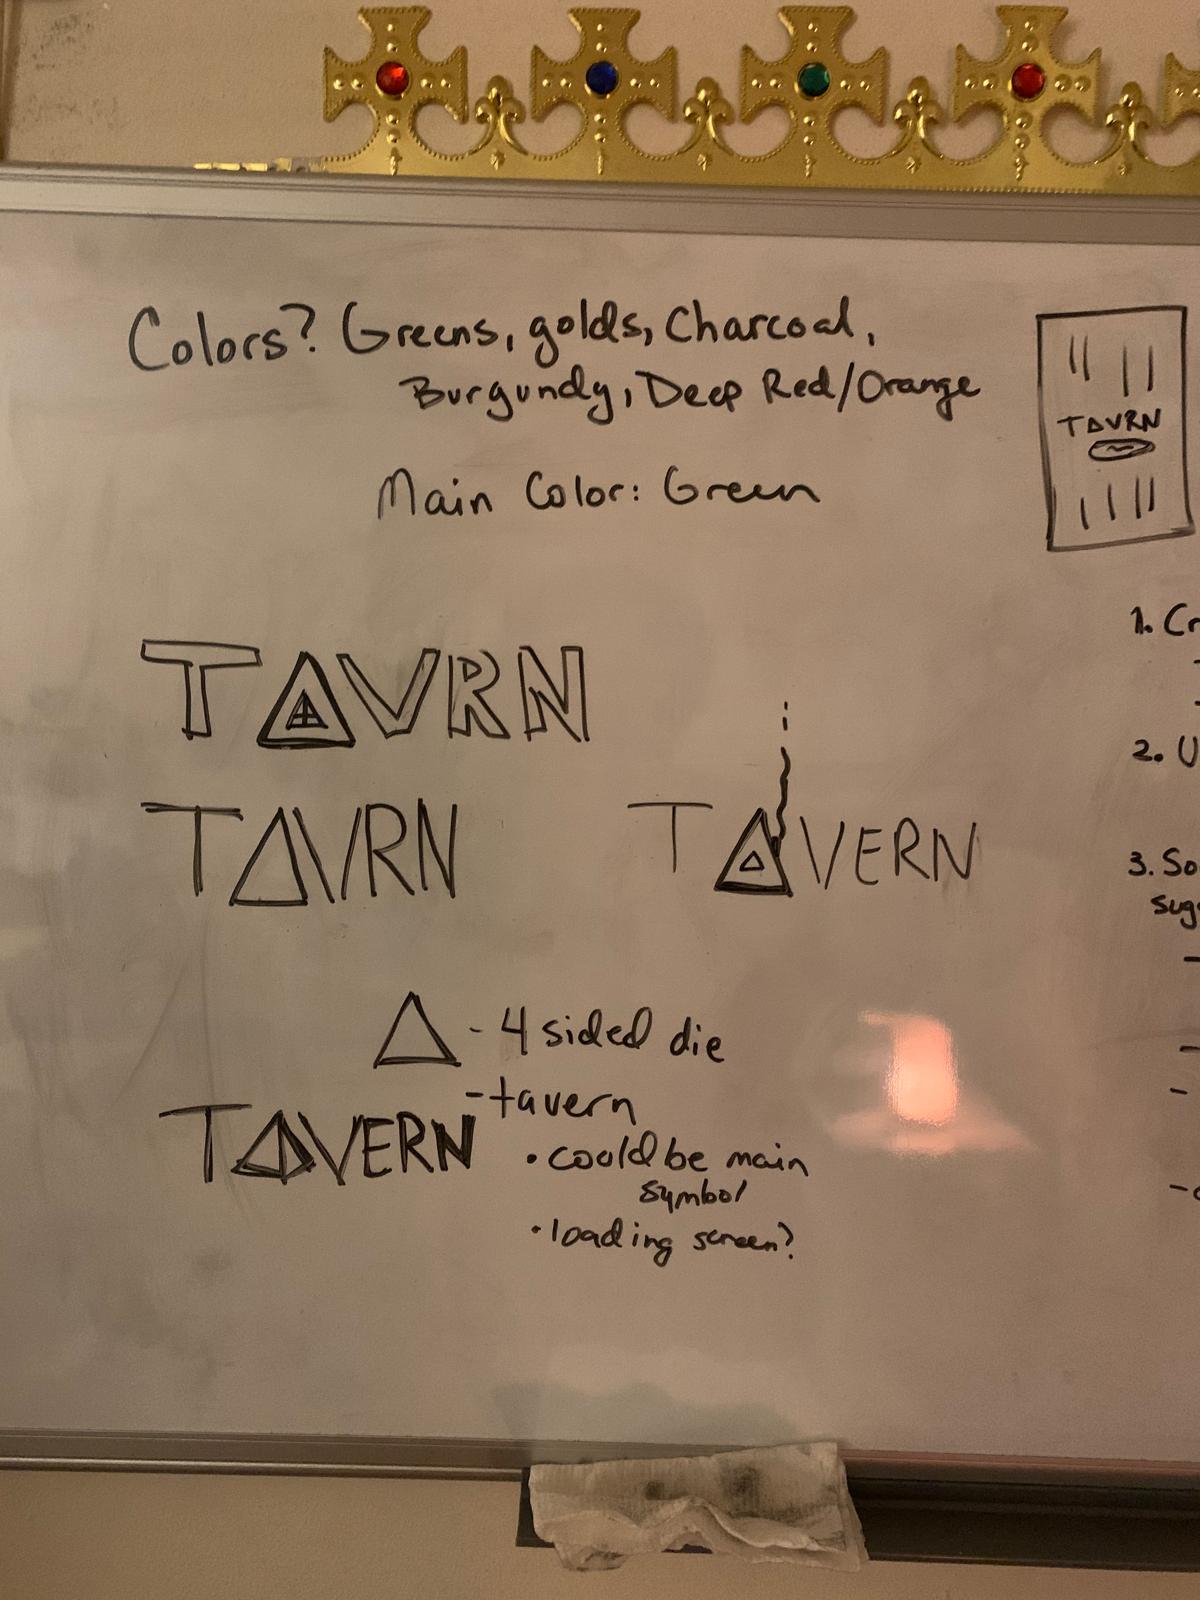 Colors? Greens, golds, Charcoal,
Burgundy, Deep Red/Orange
Main Color: Green
TAVRN
TAVRN
TAVRN
TAVERN
Δ - 4 sided die
- tavern
TAVERN
• could be main
symbol
• loading screen?
1. Cr
2. U
3. So
sug